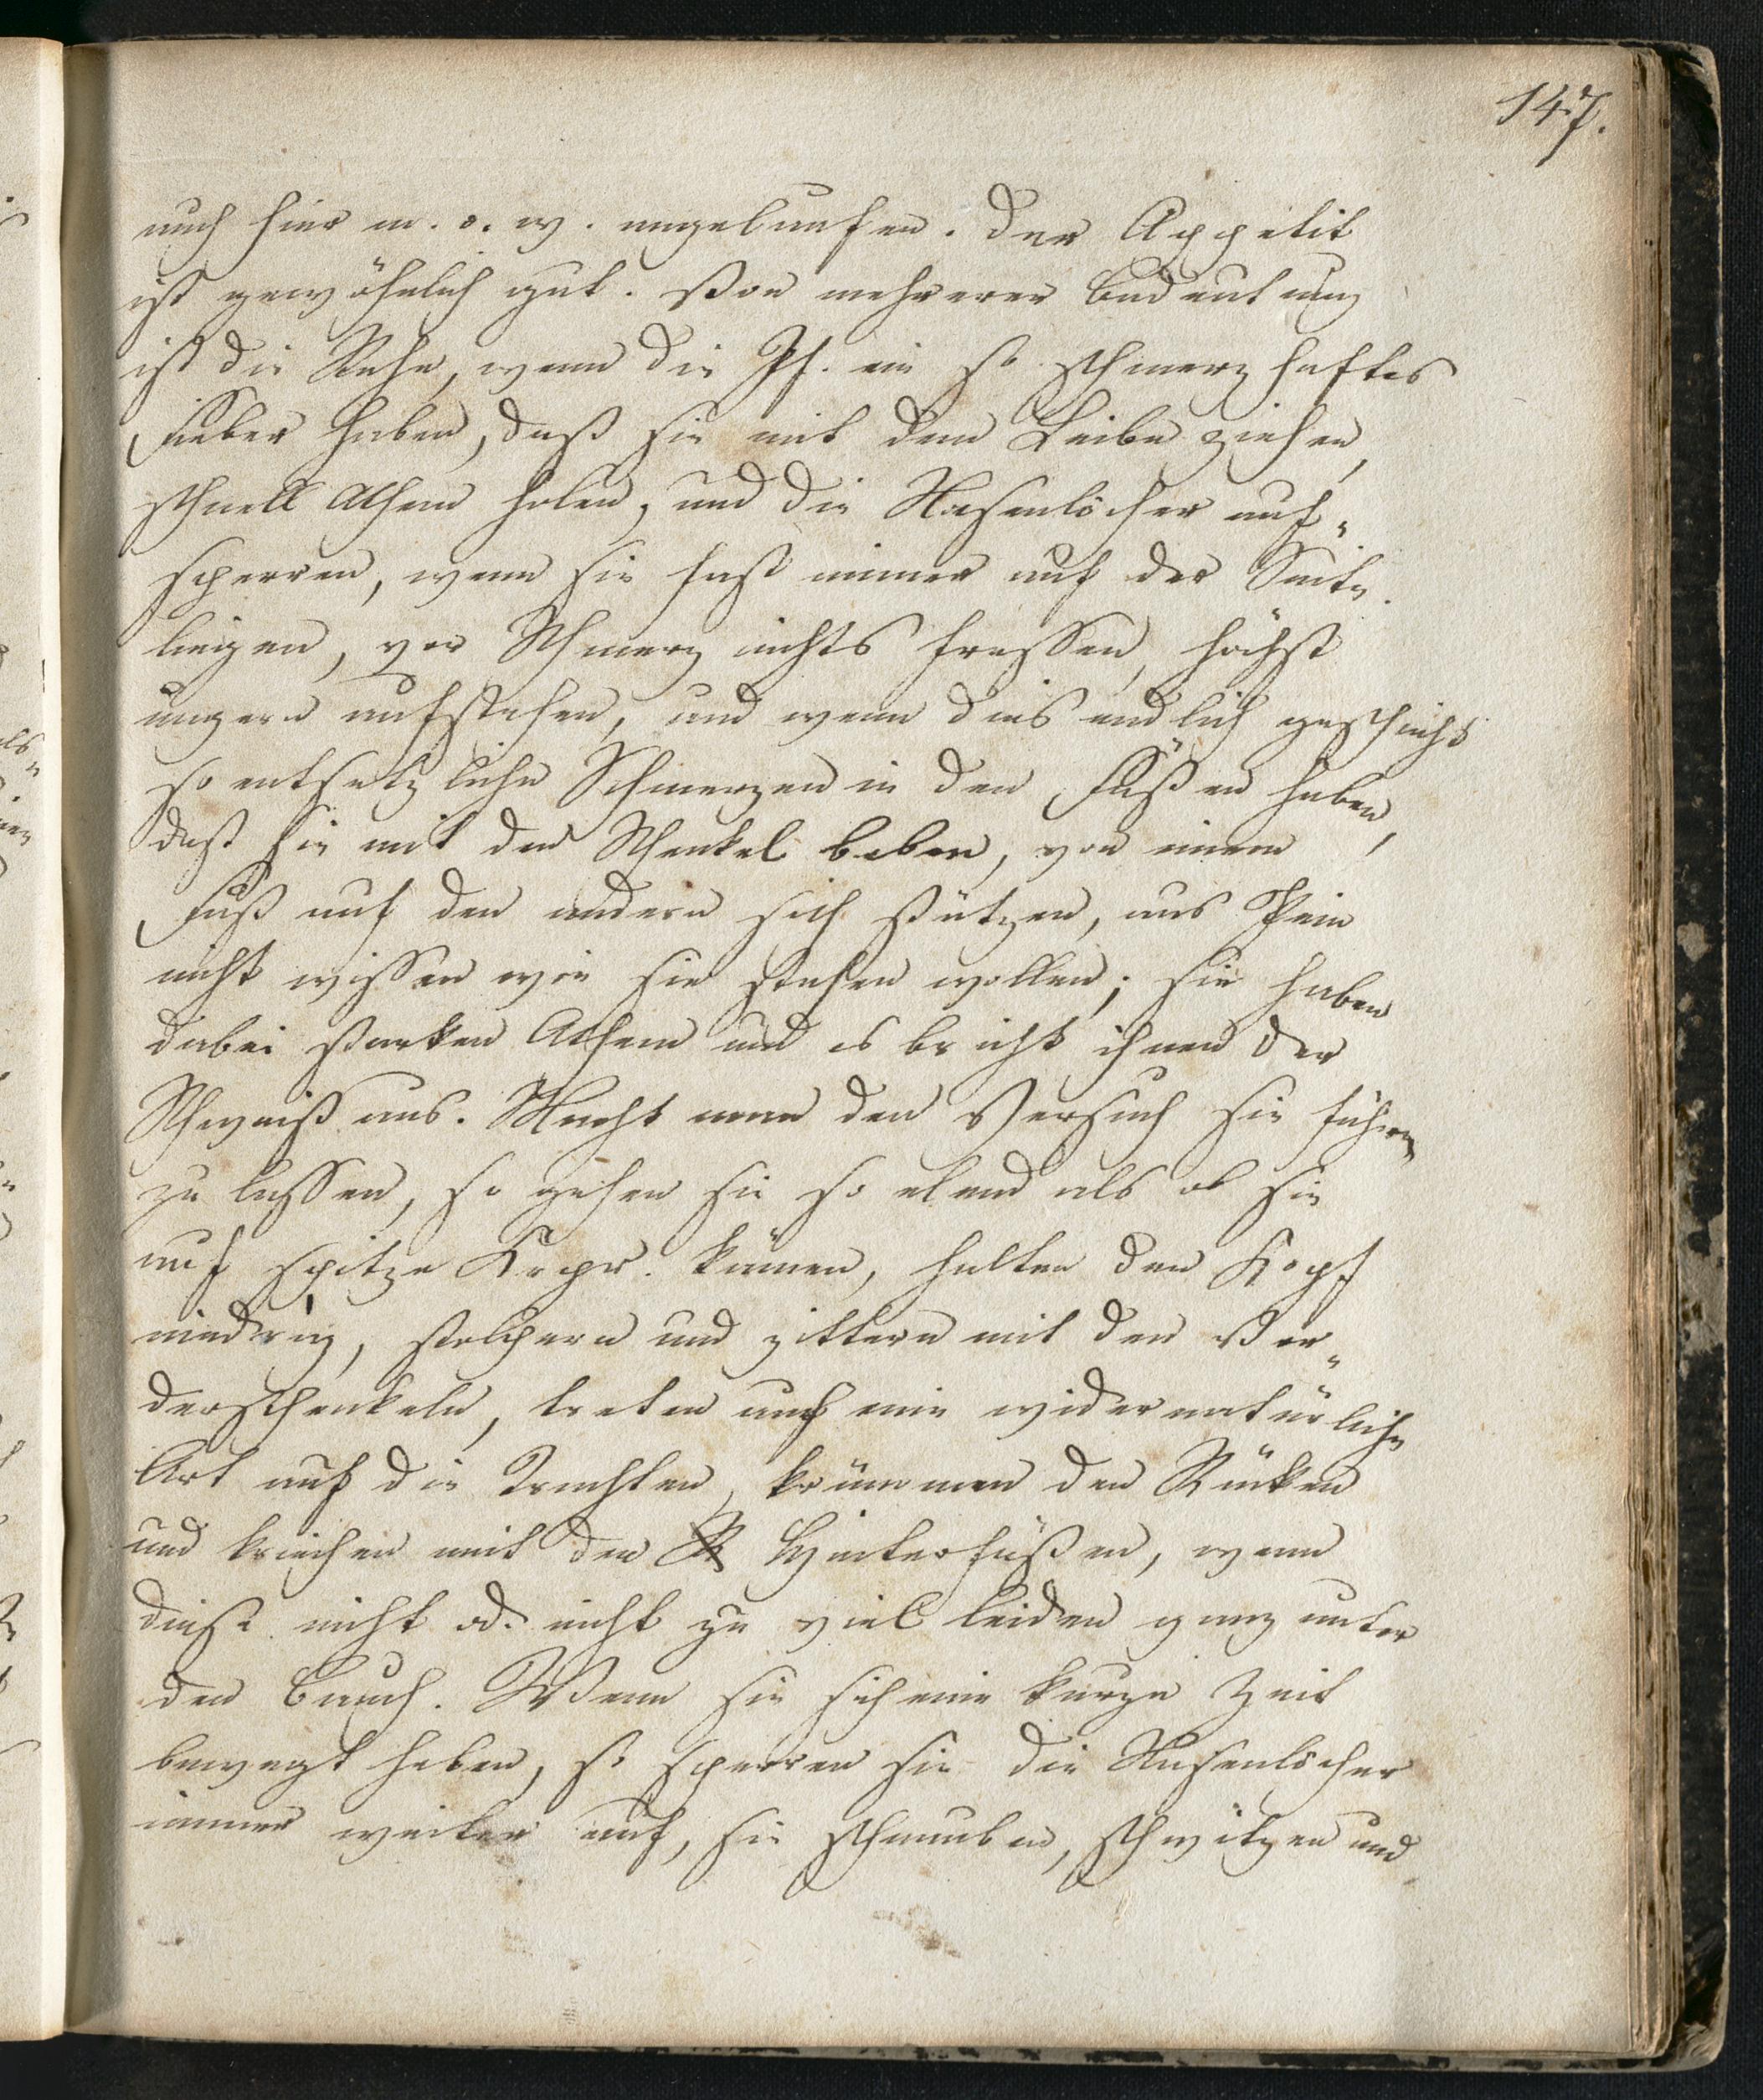 147.
auch hier m. o. w. angelaufen. Der Appetit
ist gewöhnlich gut. Von mehrerer Bedeutung
ist die Rehe, wenn die Pf. ein so schmerzhaftes
Fieber haben, daß sie mit dem Leibe ziehen,
schnell Athem holen, und die Nasenlöcher auf„
sperren, wenn sie fast immer auf der Seite
liegen, vor Schmerz nichts fressen, höchst
ungern aufstehen, und wenn dies endlich geschieht
so entsetzliche Schmerzen in den Füßen haben,
daß sie mit den Schenkel beben, von einem
Fuß auf den andern sich stützen, aus Pein
nicht wissen wie sie stehen wollen; sie haben
dabei starken Athem und es bricht ihnen der
Schweiß aus. Macht man den Versuch sie führen
zu lassen, so gehen sie so elend als ob sie
auf spitze Krpr. kämen, halten den Kopf
niedrig, stolpern und zittern mit den Vor„
derschenkeln, treten auf eine widernatürliche
Art auf die Trachten, krümmen den Rücken
und kriechen mit den Hinterfüßen, wenn
diese nicht od. nicht zu viel leiden ganz unter
den Bauch. Wenn sie sich eine kurze Zeit
bewegt haben, so sperren sie die Nasenlöcher
immer weiter auf, sie schnauben, schwitzen und